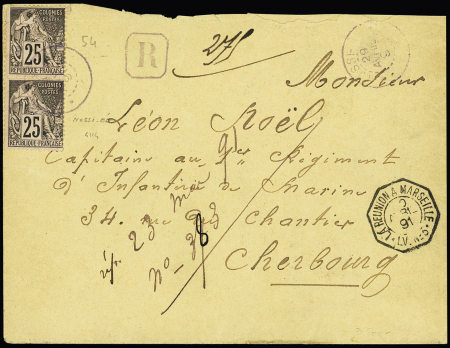 COLONIES
POSTES
25
REPUBLIQUE FRANCAISE
COLONIES
POSTES
25
REPUBLIQUE FRANCAISE
54
R
275
Monsieur
Léon Noël
Capitaine au 1er Régiment
d'Infanterie de Marine
34. rue des Chantier
Cherbourg
LA REUNION A MARSEILLE
91
L.V. N°5
29
rép. 23
no 38